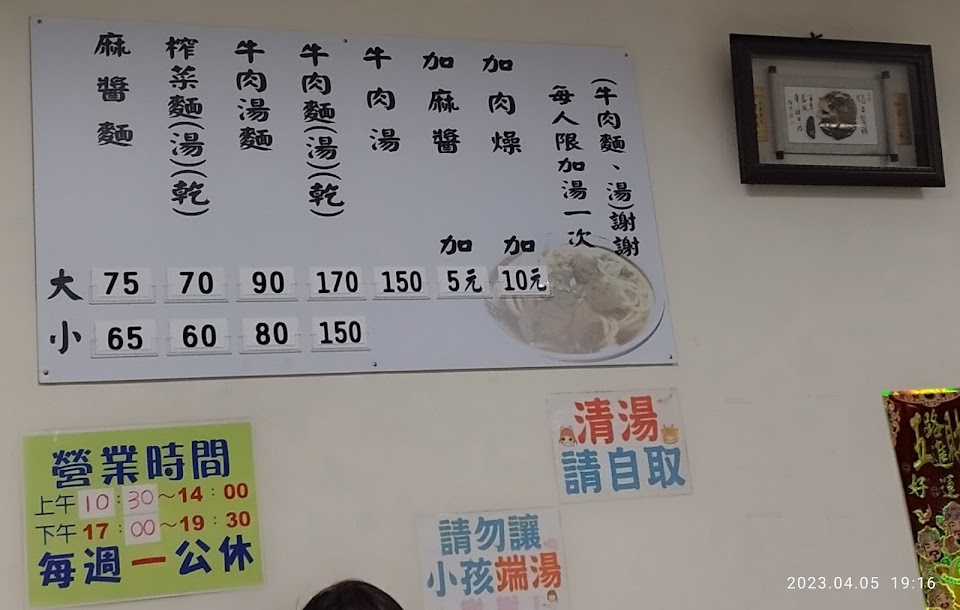 麻醬麵
榨菜麵(湯)(乾)
牛肉湯麵
牛肉麵(湯)(乾)
牛肉湯
加麻醬
加肉燥
每人限加湯一次
(牛肉麵、湯)謝謝
加 加
大 75 70 90 170 150 5元 10元
小 65 60 80 150
營業時間
上午 10:30~14:00
下午 17:00~19:30
每週一公休
清湯
請自取
請勿讓
小孩端湯
好運
2023.04.05 19:16